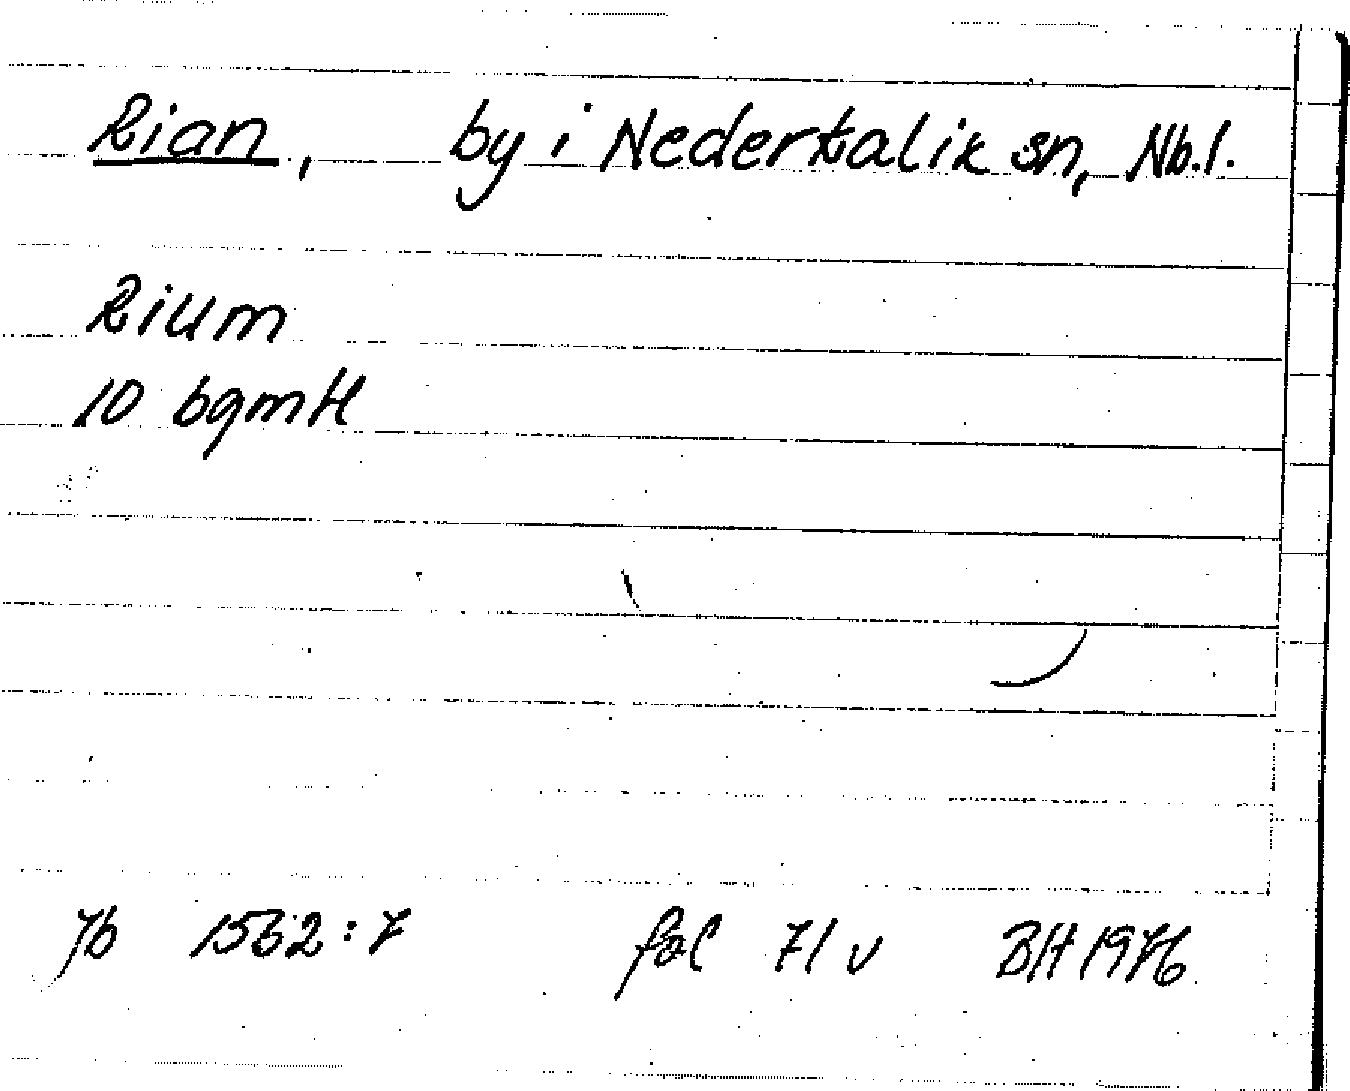 Rian, by i Nederkalix sn, Nb.l.
Rium
10 bgmtl
Jb 1562:7 fol 71 v BH 1976